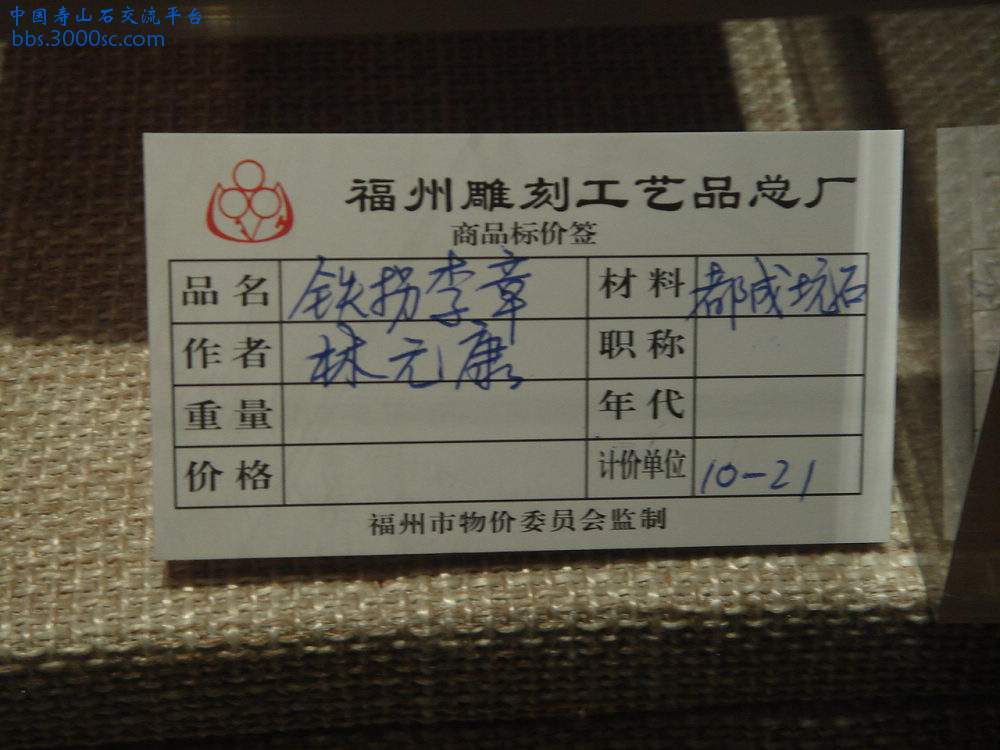 中国寿山石交流平台
bbs.3000sc.com
福州雕刻工艺品总厂
商品标价签
品名 铁拐李章 材料 都成坑石
作者 林元康 职称
重量 年代
价格 计价单位 10-21
福州市物价委员会监制